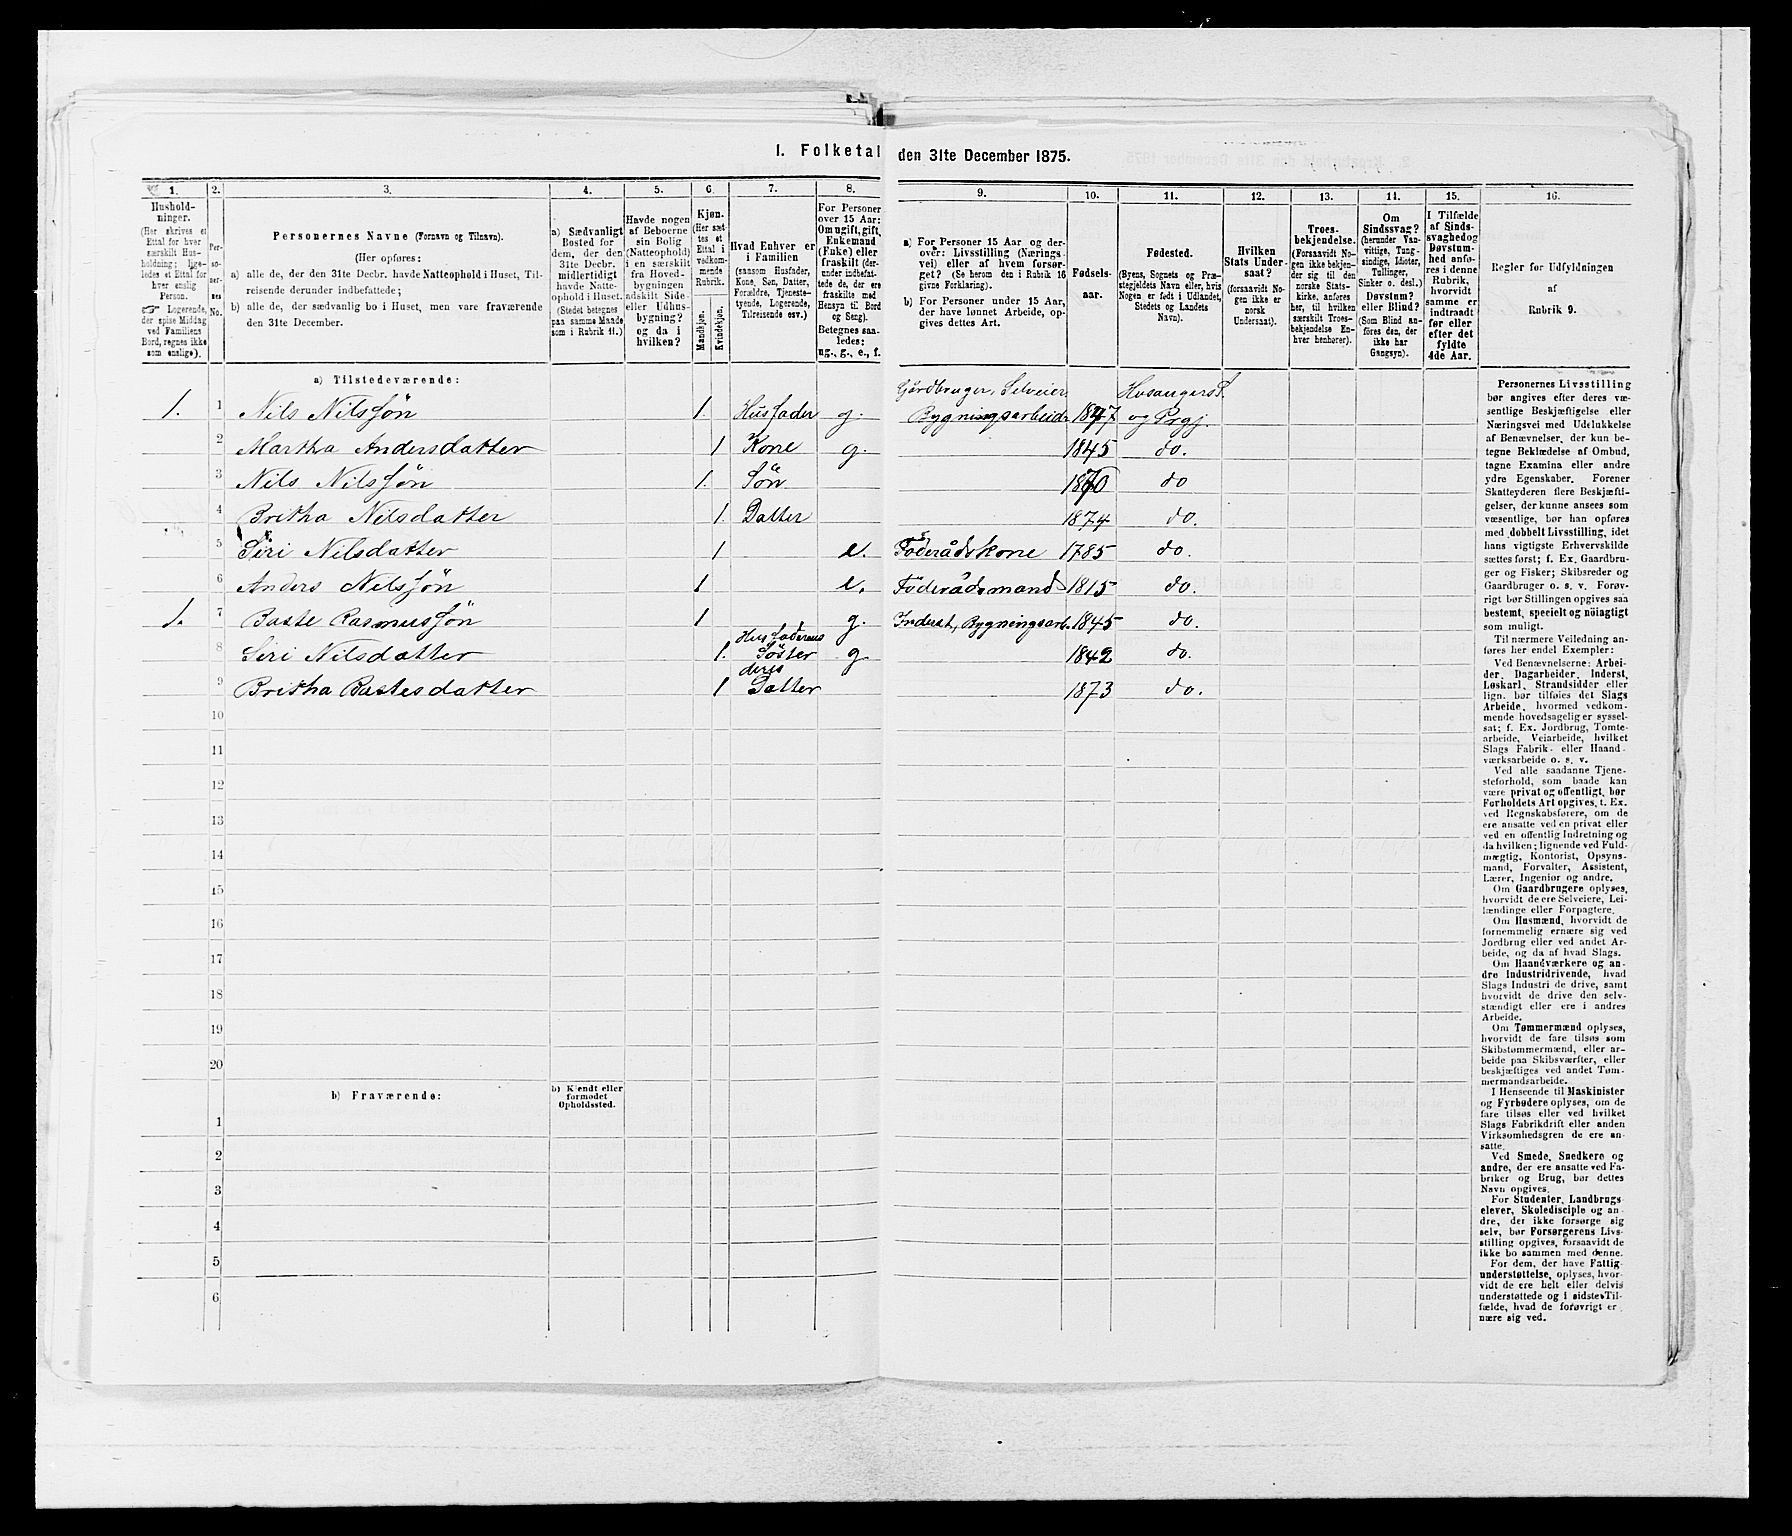 1. Folketal den 31te December 1875.
1. 2. 3. 4. 5. 6. 7. 8. 9. 10. 11. 12. 13. 14. 15. 16.
Hushold-
ninger.
(Her skrives et
Ettal for hver
særskilt Hus-
holdning; lige-
ledes et Ettal for
hver enslig
Person.
☞ Logerende,
der spise Middag
ved Familiens
Bord, regnes ikke
som enslige).
Per-
so-
ner-
nes
No.
Personernes Navne (Fornavn og Tilnavn).
(Her opføres:
a) alle de, der den 31te Decbr. havde Natteophold i Huset, Til-
reisende derunder indbefattede;
b) alle de, der sædvanlig bo i Huset, men vare fraværende
den 31te December.
a) Sædvanligt
Bosted for
dem, der den
31te Decbr.
midlertidigt
havde Natte-
ophold i Huset.
(Stedet betegnes
paa samme Maade
som i Rubrik 11.)
Havde nogen
af Beboerne
sin Bolig
(Natteophold)
i en særskilt
fra Hoved-
bygningen
adskilt Side-
eller Udhus-
bygning?
og da i
hvilken?
Kjøn.
(Her sæt-
tes et
Ettal i
vedkom-
mende
Rubrik.
Mandkjøn.
Kvindekjøn.
Hvad Enhver er
i Familien
(saasom Husfader,
Kone, Søn, Datter,
Forældre, Tjeneste-
tyende, Logerende,
Tilreisende osv.)
For Personer
over 15 Aar:
Om ugift, gift,
Enkemand
(Enke) eller
fraskilt (der-
under indbefat-
tede de, der ere
fraskilte med
Hensyn til Bord
og Seng).
Betegnes saa-
ledes:
ug., g., e., f.
a) For Personer 15 Aar og der-
over: Livsstilling (Nærings-
vei) eller af hvem forsør-
get? (Se herom den i Rubrik 16
givne Forklaring).
b) For Personer under 15 Aar,
der have lønnet Arbeide, op-
gives dettes Art.
Fødsels-
aar.
Fødested.
(Byens, Sognets og Præ-
stegjeldets Navn eller, hvis
Nogen er født i Udlandet,
Stedets og Landets
Navn).
Hvilken
Stats Under-
saat?
(forsaavidt No-
gen ikke er
norsk
Undersaat).
Troes-
bekjendelse.
(Forsaavidt No-
gen ikke bekjen-
der sig til den
norske Stats-
kirke, anføres
her, til hvilken
særskilt Troes-
bekjendelse En-
hver henhører).
Om
Sindssvag?
(herunder Van-
vittige, Tung-
sindige, Idioter,
Tullinger,
Sinker o. desl.)
Døvstum?
eller Blind?
(Som Blind an-
føres den, der
ikke har
Gangsyn).
I Tilfælde
af Sinds-
svaghed og
Døvstum-
hed anfø-
res i denne
Rubrik,
hvorvidt
samme er
indtraadt
før eller
efter det
fyldte
4de Aar.
Regler for Udfyldningen
af
Rubrik 9.
a) Tilstedeværende:
Gårdbruger, Selveier Hosanger S.
1. 1 Nils Nilssøn 1. Husfader g. Bygningsarbeide 1847 og Prgj.
2 Martha Andersdatter 1 Kone g. 1845 do.
3 Nils Nilssøn 1. Søn 1870 do
4 Britha Nilsdatter 1. Datter 1874 do.
5 Siri Nilsdatter 1 e. Föderådskone 1785 do.
6 Anders Nilssøn 1 e. Föderådsmand 1815 do.
1. 7 Baste Rasmussøn 1 g. Inderst, Bygningsarb. 1845 do.
Husfaderens
8 Siri Nilsdatter 1. Söster g 1842 do.
deres
9 Britha Bastesdatter 1 Datter 1873 do.
10
11
12
13
14
15
16
17
18
19
20
b) Fraværende:
b) Kjendt eller
formodet
Opholdssted.
1
2
3
4
5
6
Personernes Livsstilling
bør angives efter deres væ-
sentlige Beskjæftigelse eller
Næringsvei med Udelukkelse
af Benævnelser, der kun be-
tegne Beklædelse af Ombud,
tagne Examina eller andre
ydre Egenskaber. Forener
Skatteyderen flere Beskjæfti-
gelser, der kunne ansees som
væsentlige, bør han opføres
med dobbelt Livsstilling, idet
hans vigtigste Erhvervskilde
sættes først; f. Ex. Gaardbru-
ger og Fisker; Skibsreder og
Gaardbruger o. s. v. Forøv-
rigt bør Stillingen opgives saa
bestemt, specielt og nøiagtigt
som muligt.
Til nærmere Veiledning an-
føres her endel Exempler:
Ved Benævnelserne: Arbei-
der, Dagarbeider, Inderst,
Løskarl, Strandsidder eller
lign. bør tilføies det Slags
Arbeide, hvormed vedkom-
mende hovedsagelig er syssel-
sat; f. Ex. Jordbrug, Tomte-
arbeide, Veiarbeide, hvilket
Slags Fabrik- eller Haand-
værksarbeide o. s. v.
Ved alle saadanne Tjene-
steforhold, som baade kan
være privat og offentligt, bør
Forholdets Art opgives, t. Ex.
ved Regnskabsførere, om de
ere ansatte ved en privat eller
ved en offentlig Indretning og
da hvilken; lignende ved Fuld-
mægtig, Kontorist, Opsyns-
mand, Forvalter, Assistent,
Lærer, Ingeniør og andre.
Om Gaardbrugere oplyses,
hvorvidt de ere Selveiere, Lei-
lændinge eller Forpagtere.
Om Husmænd, hvorvidt de
fornemmelig ernære sig ved
Jordbrug eller ved andet Ar-
beide, og da af hvad Slags.
Om Haandværkere og an-
dre Industridrivende, hvad
Slags Industri de drive, samt
hvorvidt de drive den selv-
stændigt eller ere i andres
Arbeide.
Om Tømmermænd oplyses,
hvorvidt de fare tilsøs som
Skibstømmermænd, eller ar-
beide paa Skibsværfter, eller
beskjæftiges ved andet Tøm-
mermandsarbeide.
I Henseende til Maskinister
og Fyrbødere oplyses, om de
fare tilsøs eller ved hvilket
Slags Fabrikdrift eller anden
Virksomhedsgren de ere an-
satte.
Ved Smede, Snedkere og
andre, der ere ansatte ved Fa-
briker og Brug, bør dettes
Navn opgives.
For Studenter, Landbrugs
elever, Skoledisciple og an-
dre, der ikke forsørge sig
selv, bør Forsørgerens Livs-
stilling opgives, forsaavidt de
ikke bo sammen med denne.
For dem, der have Fattig
understøttelse, oplyses, hvor-
vidt de ere helt eller delvis
understøttede og i sidste Til-
fælde, hvad de forøvrigt er
nære sig ved.